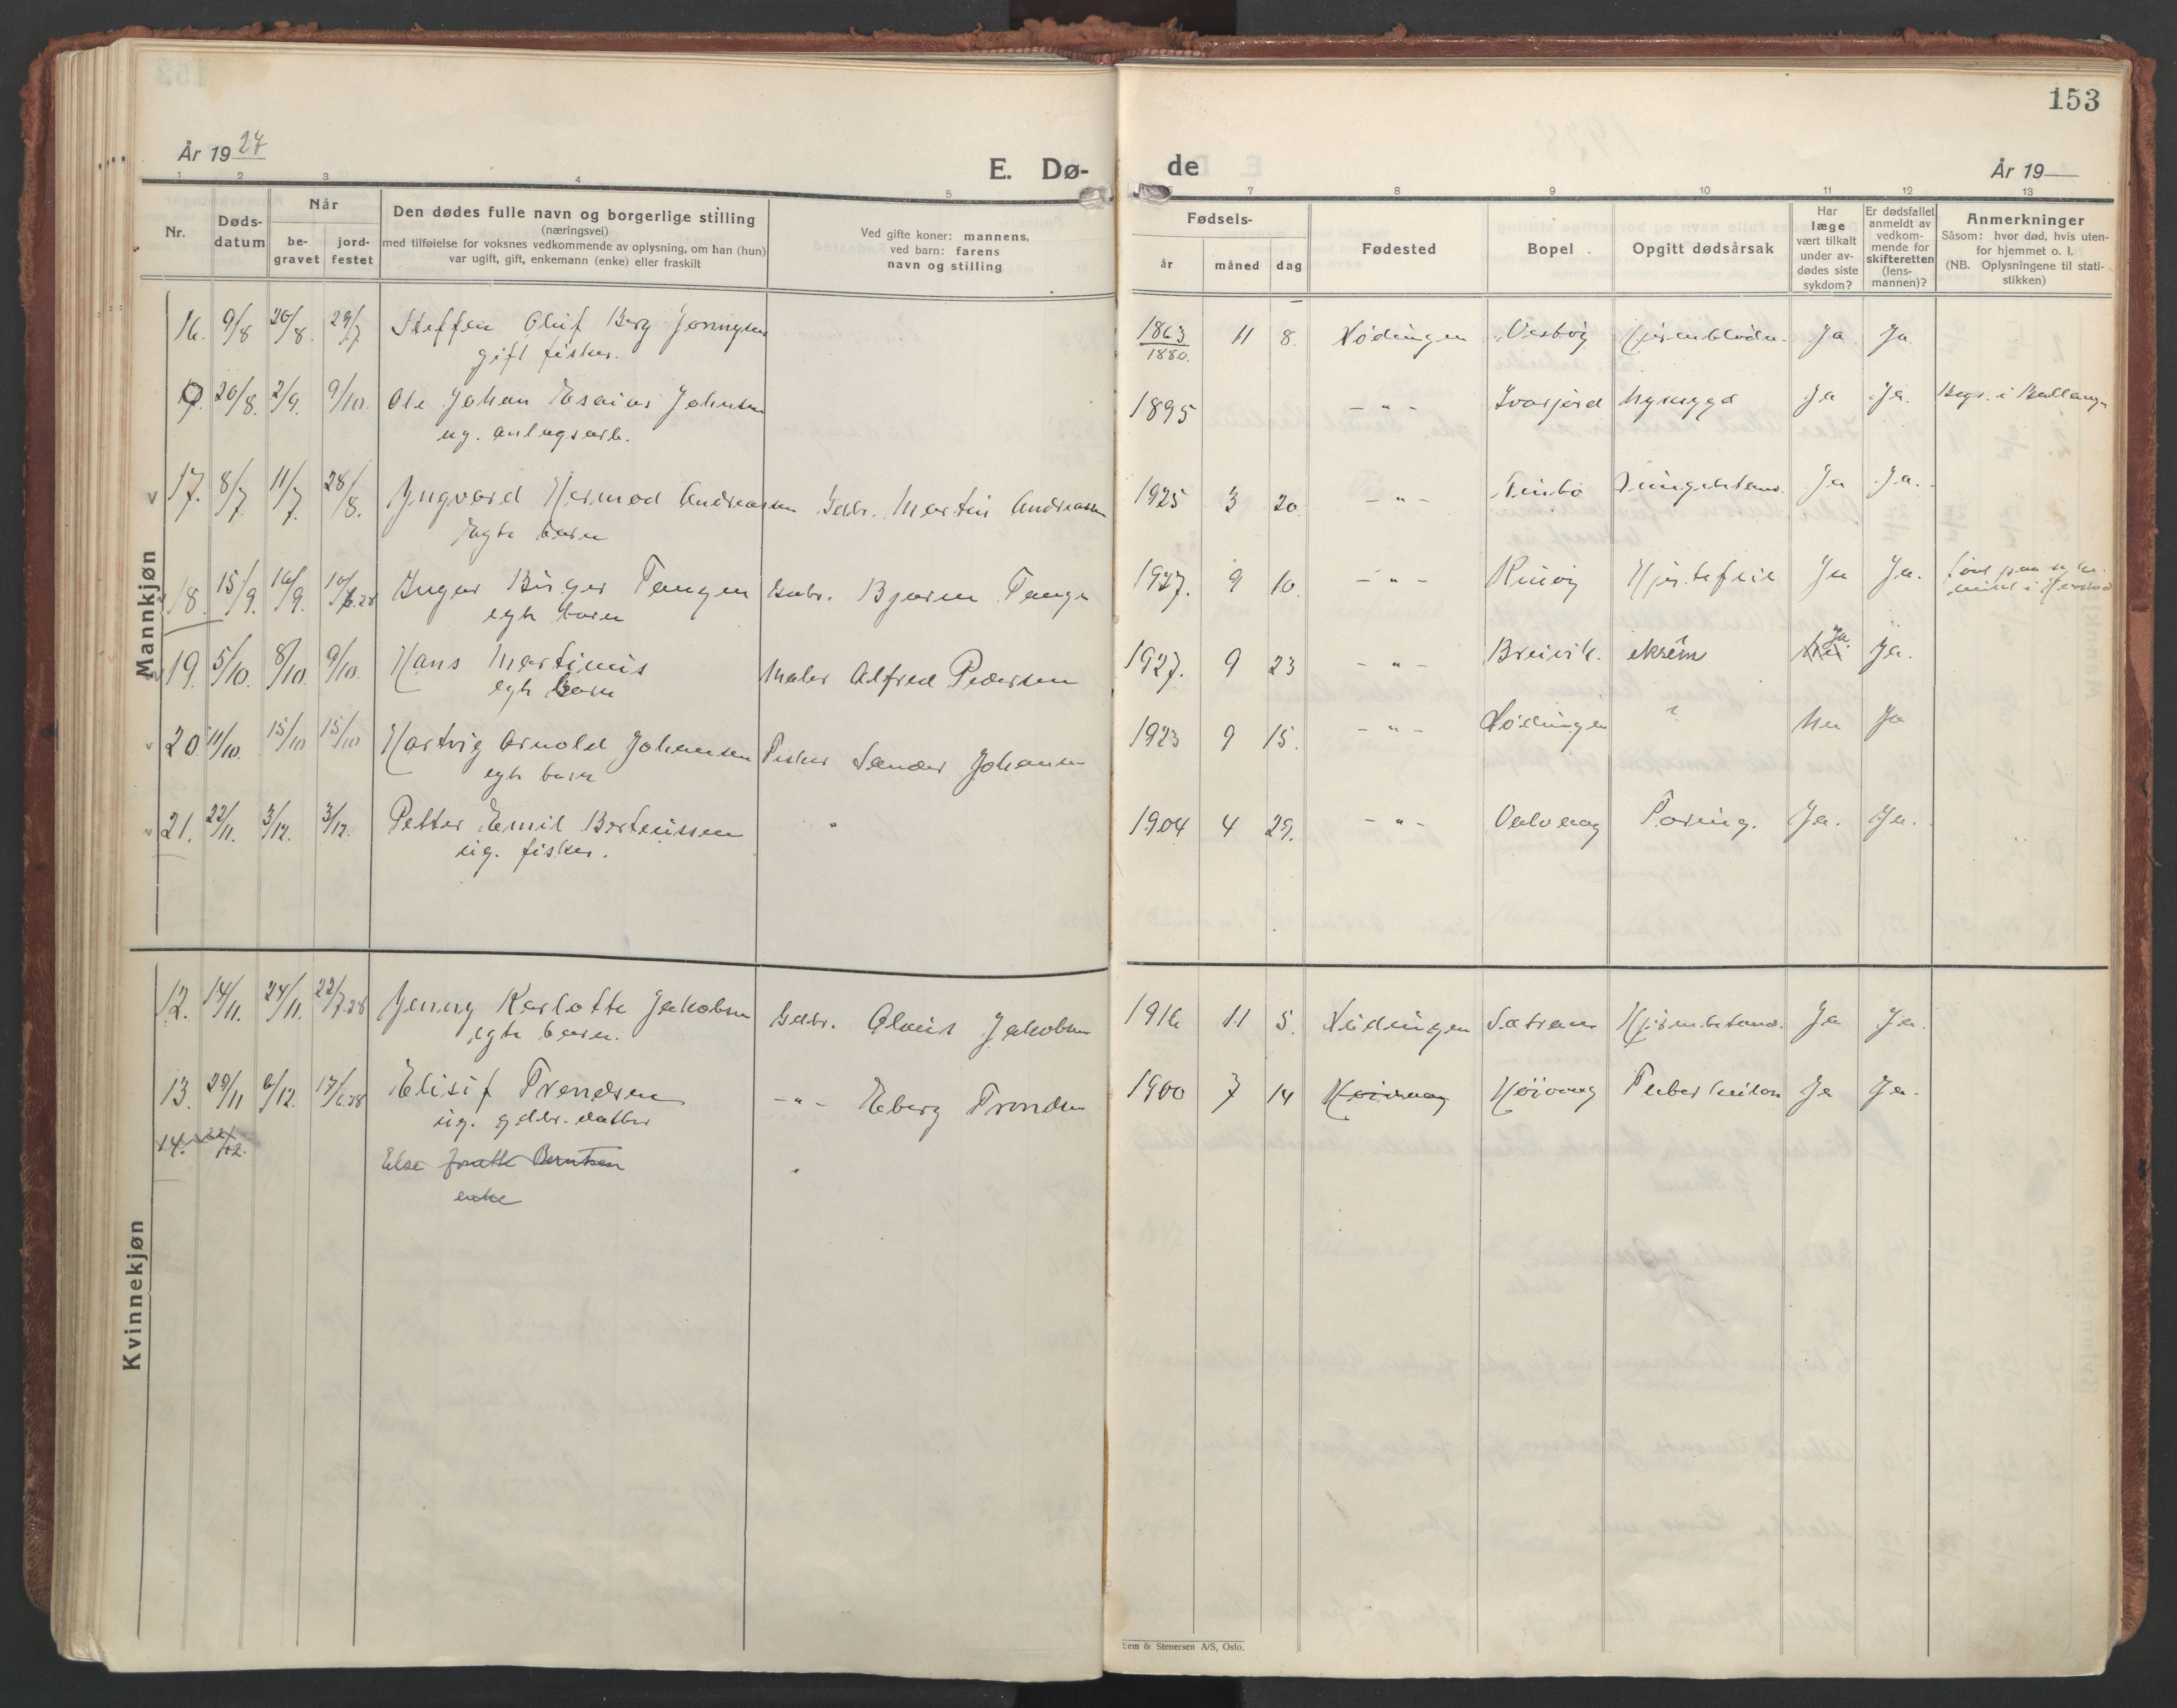 153
År 1927
E. Dø-
de
År 19
1 2 3 4 5 6 7 8 9 10 11 12 13
Nr.
Døds-
datum
Når
be-
gravet
jord-
festet
Den dødes fulle navn og borgerlige stilling
(næringsvei)
med tilføielse for voksnes vedkommende av oplysning, om han (hun)
var ugift, gift, enkemann (enke) eller fraskilt
Ved gifte koner: mannens,
ved barn: farens
navn og stilling
Fødsels-
år måned dag
Fødested
Bopel
Opgitt dødsårsak
Har
læge
vært tilkalt
under av-
dødes siste
sykdom?
Er dødsfallet
anmeldt av
vedkom-
mende for
skifteretten
(lens-
mannen)?
Anmerkninger
Såsom: hvor død, hvis uten-
for hjemmet o. l.
(NB. Oplysningene til stati-
stikken)
Mannkjøn
16. 9/8 20/8. 29/7 Steffen Oluf Berg 1863 11 8. Lødingen Ja Ja
gift fisker. 1880.
20/8. 2/9. 9/10. Ole Johan Esaias Johnsen 1895 -"- Ja Ja. Begr. i Ballangn
ug. anlegsarb.
17. 8/7 11/7. 28/8. Yngvard Hermod Andreassen Gdbr. Martin Andreassen 1925 3 20. -"- Ja Ja.
Egte barn
18. 15/9. 16/9. Ingar Birger Tangen Gdbr. Bjarne Tangen 1927. 9 10. -"- Rinøy Hjertefeil Ja Ja.
egte barn
19. 5/10. 8/10. 9/10. Hans Martinus Maler Alfred Pedersen 1927. 9 23 -"- Breivik. eksem Ja Ja.
egte barn
20. 11/10. 15/10 15/10 Hartvig Arnold Johansen Fisker Sander Johansen 1923 9 15. -"- Lødingen ? Nei Ja
egte barn
21. 22/11. 3/12. 3/12. Petter Emil Berteussen " 1904 4 29. -"- Tæring. Ja. Ja.
ug. fisker.
Kvinnekjøn
12. 14/11. 24/11. 22/7.28 Jenny Karlotte Jakobsen Gdbr. Olaus Jakobsen 1916 11 5. Lødingen Hjernebetend. Ja Ja.
egte barn.
13. 29/11 6/12. 17/6.28 Elisif Trondsen -"- Eberg Trondsen 1900 7 14 Høivaag Høivaag Tuberkulose Ja Ja.
ug. gdbr. datter
14. Else Berntsen "
enke
Sem & Stenersen A/S, Oslo.